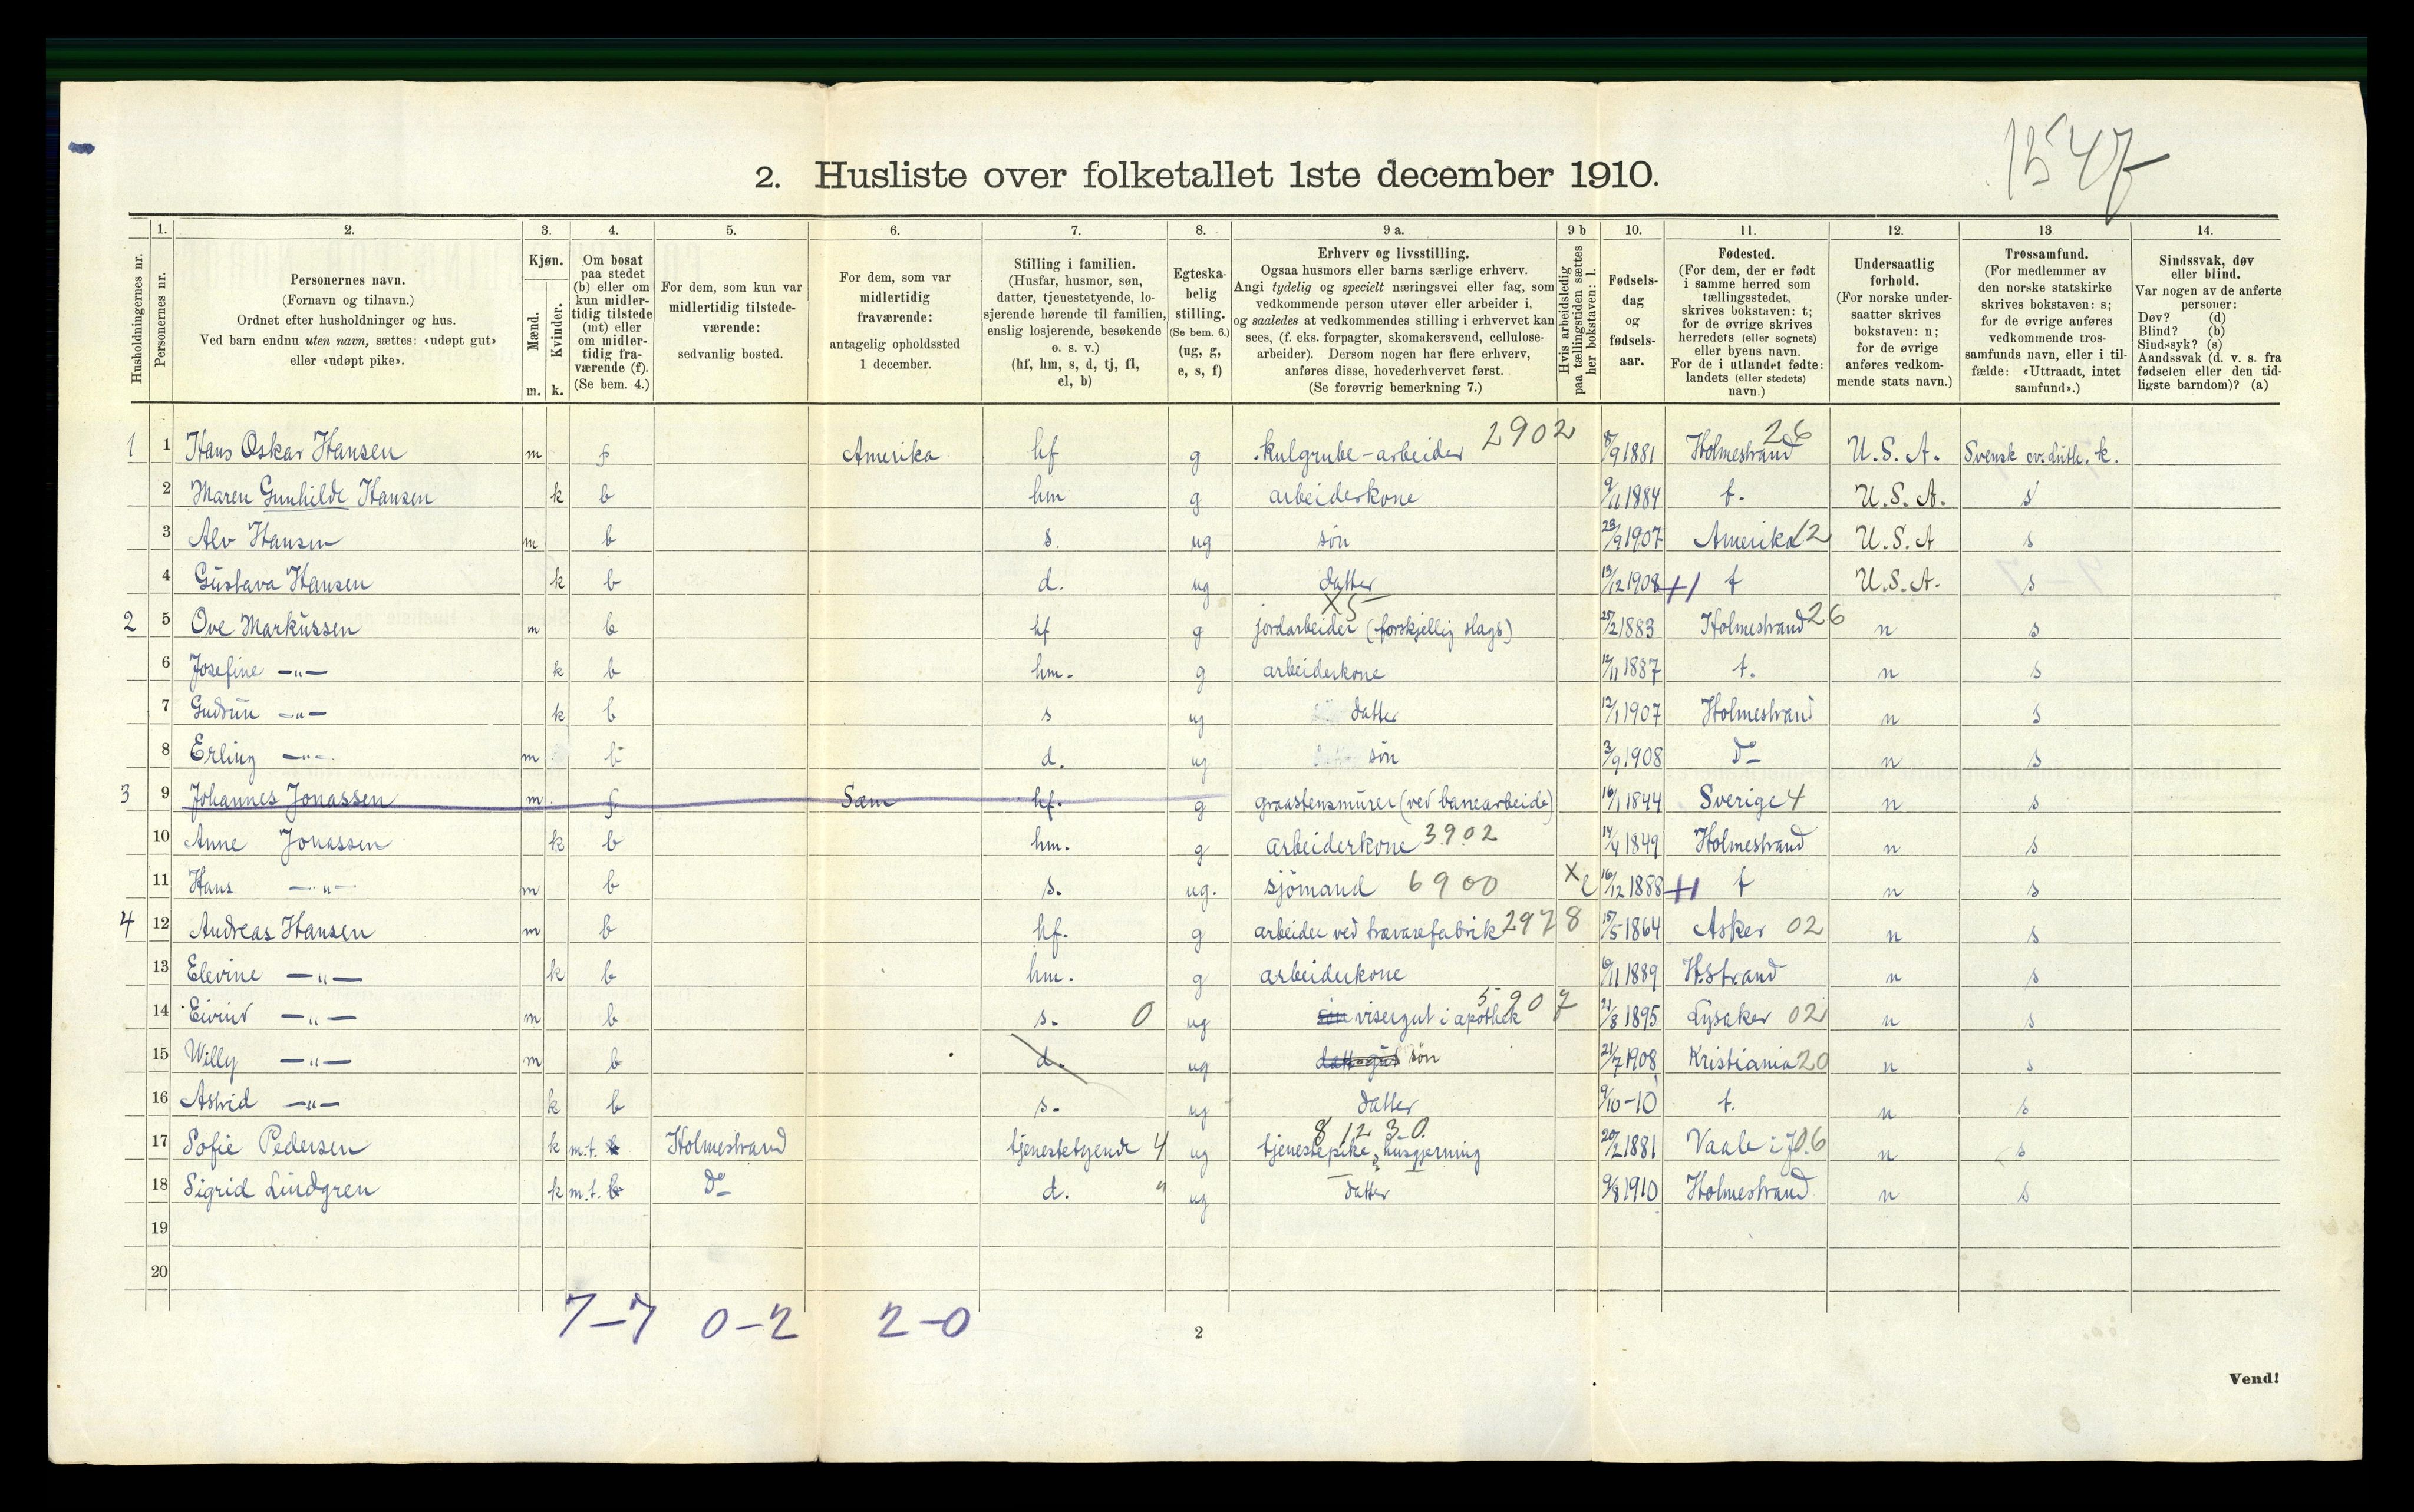 1547
2. Husliste over folketallet 1ste december 1910.
Husholdningernes nr.
1. Personernes nr.
2. Personernes navn.
(Fornavn og tilnavn.)
Ordnet efter husholdninger og hus.
Ved barn endnu uten navn, sættes: «udøpt gut»
eller «udøpt pike».
3. Kjøn.
Mænd. m.
Kvinder. k.
4. Om bosat
paa stedet
(b) eller om
kun midler-
tidig tilstede
(mt) eller
om midler-
tidig fra-
værende (f).
(Se bem. 4.)
5. For dem, som kun var
midlertidig tilstede-
værende:
sedvanlig bosted.
6. For dem, som var
midlertidig
fraværende:
antagelig opholdssted
1 december.
7. Stilling i familien.
(Husfar, husmor, søn,
datter, tjenestetyende, lo-
sjerende hørende til familien,
enslig losjerende, besøkende
o. s. v.)
(hf, hm, s, d, tj, fl,
el, b)
8. Egteska-
belig
stilling.
(Se bem. 6.)
(ug, g,
e, s, f)
9 a. Erhverv og livsstilling.
Ogsaa husmors eller barns særlige erhverv.
Angi tydelig og specielt næringsvei eller fag, som
vedkommende person utøver eller arbeider i,
og saaledes at vedkommendes stilling i erhvervet kan
sees, (f. eks. forpagter, skomakersvend, cellulose-
arbeider). Dersom nogen har flere erhverv,
anføres disse, hovederhvervet først.
(Se forøvrig bemerkning 7.)
9 b Hvis arbeidsledig
paa tællingstiden sættes
her bokstaven: l.
10. Fødsels-
dag
og
fødsels-
aar.
11. Fødested.
(For dem, der er født
i samme herred som
tællingsstedet,
skrives bokstaven: t;
for de øvrige skrives
herredets (eller sognets)
eller byens navn.
For de i utlandet fødte:
landets (eller stedets)
navn.)
12. Undersaatlig
forhold.
(For norske under-
saatter skrives
bokstaven: n;
for de øvrige
anføres vedkom-
mende stats navn.)
13 Trossamfund.
(For medlemmer av
den norske statskirke
skrives bokstaven: s;
for de øvrige anføres
vedkommende tros-
samfunds navn, eller i til-
fælde: «Uttraadt, intet
samfund».)
14. Sindssvak, døv
eller blind.
Var nogen av de anførte
personer:
Døv? (d)
Blind? (b)
Sindssyk? (s)
Aandssvak (d. v. s. fra
fødselen eller den tid-
ligste barndom)? (a)
1 1 Hans Oskar Hansen m f Amerika hf g kulgrube-arbeider 2902 8/9 1881 Holmestrand 26 U.S.A. Svensk ev. luth. k.
2 Maren Gunhilde Hansen k b hm g arbeiderkone 9/11 1884 t. U.S.A. s
3 Alv Hansen m b s. ug søn 23/9 1907 Amerika 12 U.S.A s
4 Gustava Hansen k b d. ug datter 13/12 1908 t U.S.A. s
2 5 Ove Markussen m b hf g jordarbeider (forskjellig slags) X5 25/2 1883 Holmestrand 26 n s
6 Josefine —"— k b hm. g arbeiderkone 12/11 1887 t. n s
7 Gudrun —"— k b s ug datter 12/1 1907 Holmestrand n s
8 Erling —"— m b d. ug søn 3/9 1908 do n s
3 9 Johannes Jonassen m f Sæm hf. g graastensmurer (ved banearbeide) 16/1 1844 Sverige 4 n s
10 Anne Jonassen k b hm. g arbeiderkone 3902 14/4 1849 Holmestrand n s
11 Hans —"— m b s. ug. sjömand 6900 X l 16/12 1888 t n s
4 12 Andreas Hansen m b hf. g arbeider ved trævarefabrik 2978 15/5 1864 Asker 02 n s
13 Elevine —"— k b hm. g arbeiderkone 6/11 1889 H.strand n s
14 Eivind —"— m b s. 0 ug søn visergut i apothek 5907 21/8 1895 Lysaker 02 n s
15 Willy —"— m b d. ug søn 21/7 1908 Kristiania 20 n s
16 Astrid —"— k b s. ug datter 9/10-10 t. n s
17 Sofie Pedersen k m.t. b Holmestrand tjenestetyende 4 ug tjenestepike, husgjerning 8 12 3 0. 20/2 1881 Vaale i J. 06 n s
18 Sigrid Lindgren k m.t. b do d. " ug datter 9/8 1910 Holmestrand n s
19
20
7-7 0-2 2-0
2
Vend!